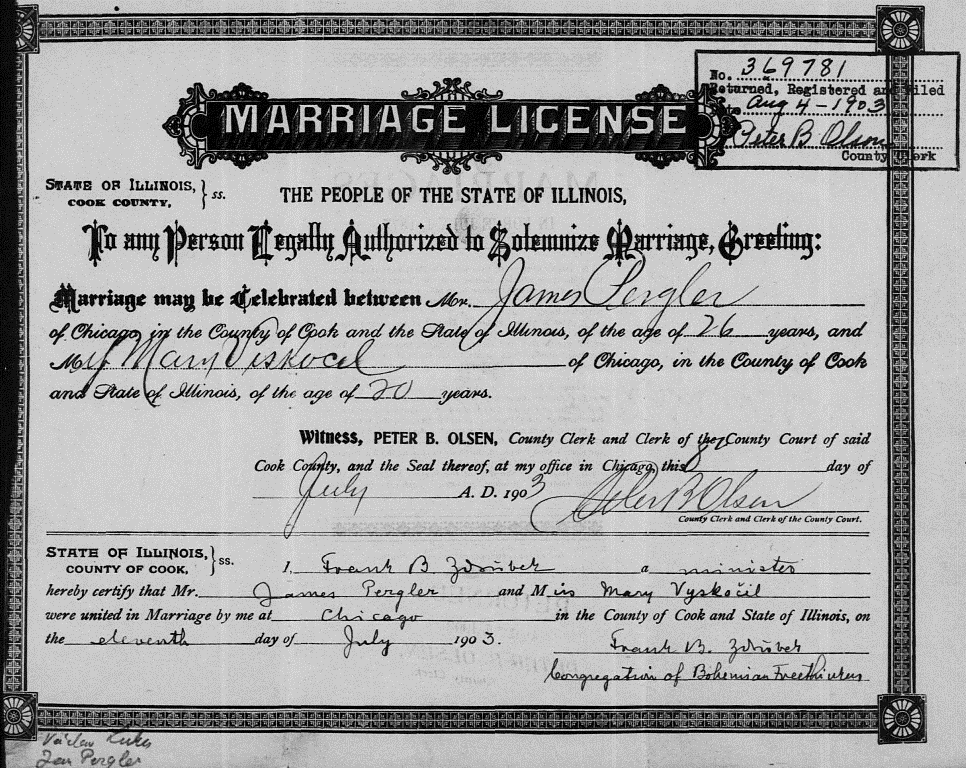 No. 369781
Returned, Registered and Filed
Date Aug 4 - 1903
Peter B Olsen
County Clerk
MARRIAGE LICENSE
STATE OF ILLINOIS, } ss.
COOK COUNTY,
THE PEOPLE OF THE STATE OF ILLINOIS,
To any Person Legally Authorized to Solemnize Marriage, Greeting:
Marriage may be Celebrated between Mr. James Pergler
of Chicago, in the County of Cook and the State of Illinois, of the age of 26 years, and
M Mary Viskocil of Chicago, in the County of Cook
and State of Illinois, of the age of 20 years.
Witness, PETER B. OLSEN, County Clerk and Clerk of the County Court of said
Cook County, and the Seal thereof, at my office in Chicago, this 8 day of
July A. D. 1903 Peter B Olsen
County Clerk and Clerk of the County Court.
STATE OF ILLINOIS, } ss.
COUNTY OF COOK,
I, Frank B Zdrůbek a minister
hereby certify that Mr. James Pergler and Miss Mary Vyskočil
were united in Marriage by me at Chicago in the County of Cook and State of Illinois, on
the eleventh day of July 1903.
Frank B. Zdrůbek
Congregation of Bohemian Freethinkers
Václav
Jan Pergler